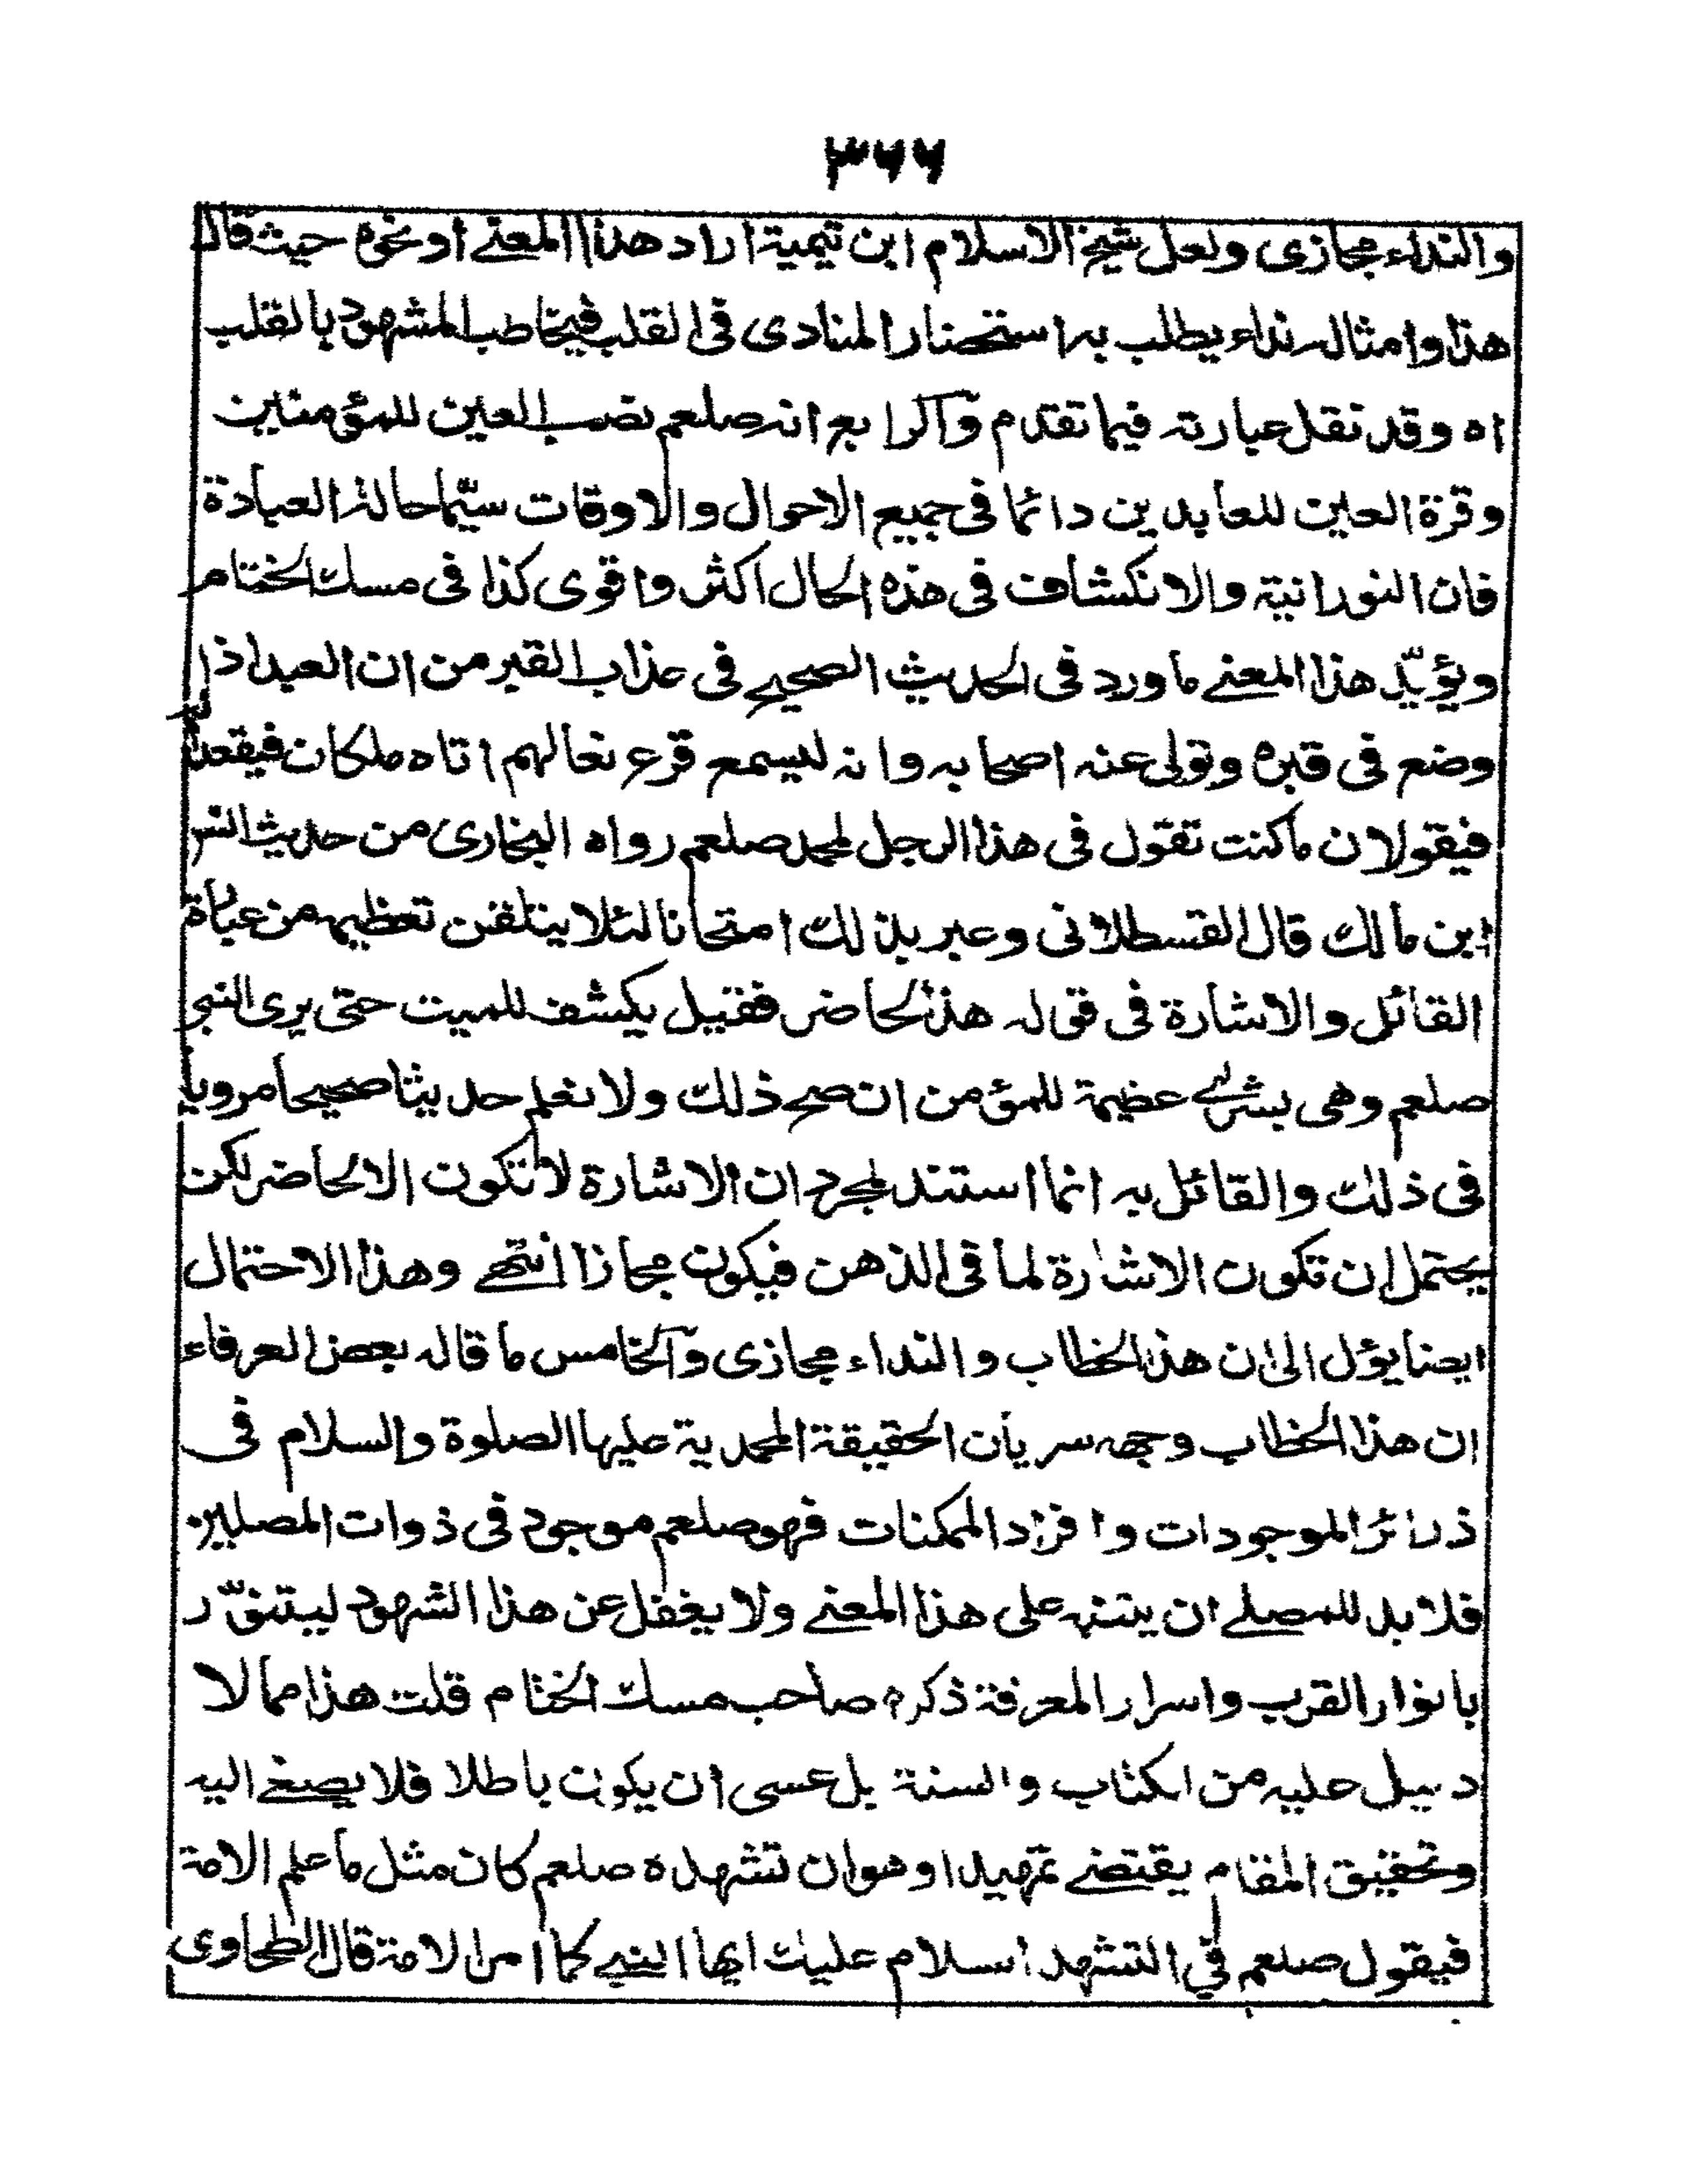 ٣٦٦
والنداء مجازى ولعل شيخ الاسلام ابن تيمية اراد هذا المعنے او نحوه حيث قال
هذا وامثاله نداء يطلب به استحضار المنادى فى القلب فيخاطب المشهود بالقلب
اه وقد نقل عبارته فيما تقدم والرابع انه صلعم نصب العين للمؤمنين
وقرة العين للعابدين دائما فى جميع الاحوال والاوقات سيّما حالة العبادة
فان النورانية والانكشاف فى هذه الحال اكثر واقوى كذا فى مسك الختام
ويؤيّد هذا المعنے ما ورد فى الحديث الصحيح فى عذاب القبر من ان العبد اذا
وضع فى قبره وتولى عنه اصحابه وانه ليسمع قرع نعالهم اتاه ملكان فيقعدانه
فيقولان ما كنت تقول فى هذا الرجل لمحمد صلعم رواه البخارى من حديث انس
ابن مالك قال القسطلانى وعبر بذلك امتحانا لئلا يتلقن تعظيمه من عبارة
القائل والاشارة فى قوله هذا لحاضر فقيل يكشف للميت حتى يرى النبى
صلعم وهى بشرىٰ عظيمة للمؤمن ان صح ذلك ولا نعلم حديثا صحيحا مرويا
فى ذلك والقائل به انما استند لمجرد ان الاشارة لا تكون الا لحاضر لكن
يحتمل ان تكون الاشارة لما فى الذهن فيكون مجازا انتهے وهذا الاحتمال
ايضا يؤل الى ان هذا الخطاب والنداء مجازى والخامس ما قاله بعض العرفاء
ان هذا الخطاب وجهه سريان الحقيقة المحمدية عليها الصلوة والسلام فى
ذرائر الموجودات وافراد الممكنات فهو صلعم موجود فى ذوات المصلين
فلا بد للمصلے ان يتنبه على هذا المعنے ولا يغفل عن هذا الشهود ليتنوّر
بانوار القرب واسرار المعرفة ذكره صاحب مسك الختام قلت هذا مما لا
دليل عليه من الكتاب والسنة بل عسى ان يكون باطلا فلا يصغے اليه
وتحقيق المقام يقتضے تمهيدا وهو ان تشهده صلعم كان مثل ما علم الامة
فيقول صلعم في التشهد السلام عليك ايها النبے كما امر الامة قال الطحاوى